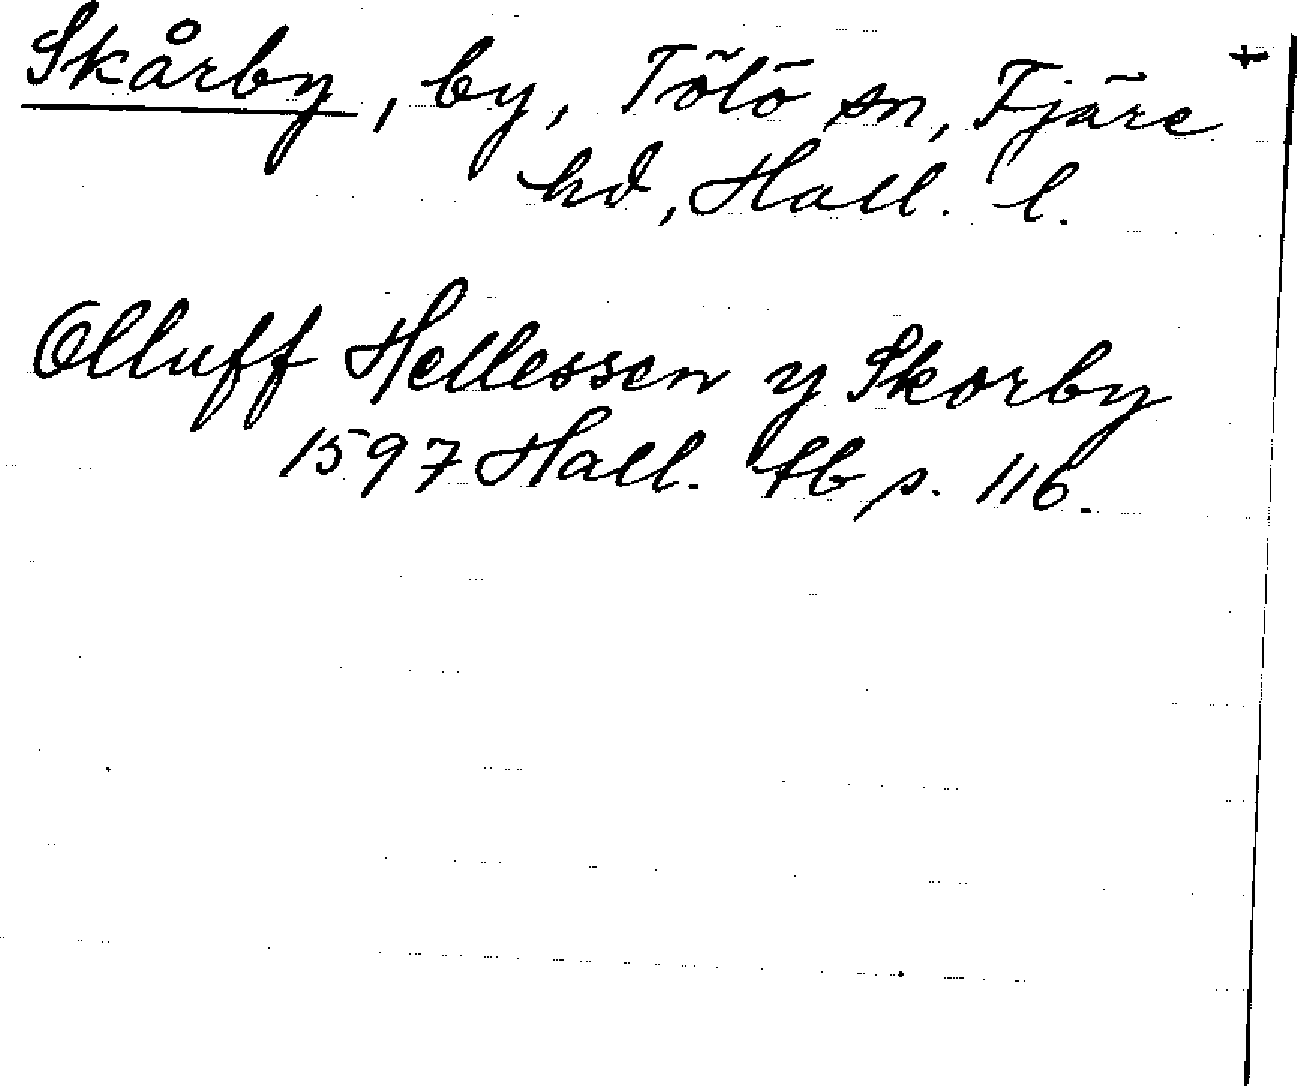 Skårby, by, Tölö sn, Fjäre +
hd, Hall. l.
Olluff Hellessen y Skorby
1597 Hall. tb p. 116.